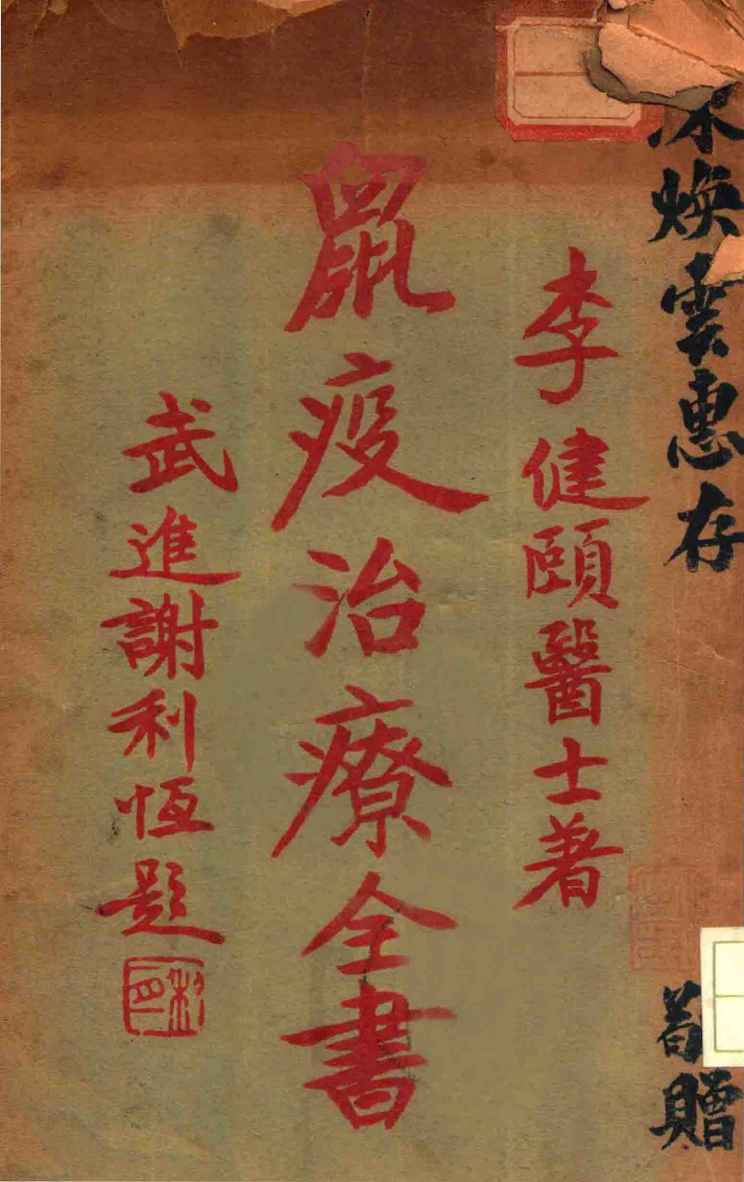 煥雲惠存
贈
李健頤醫士著
鼠疫治療全書
武進謝利恆題